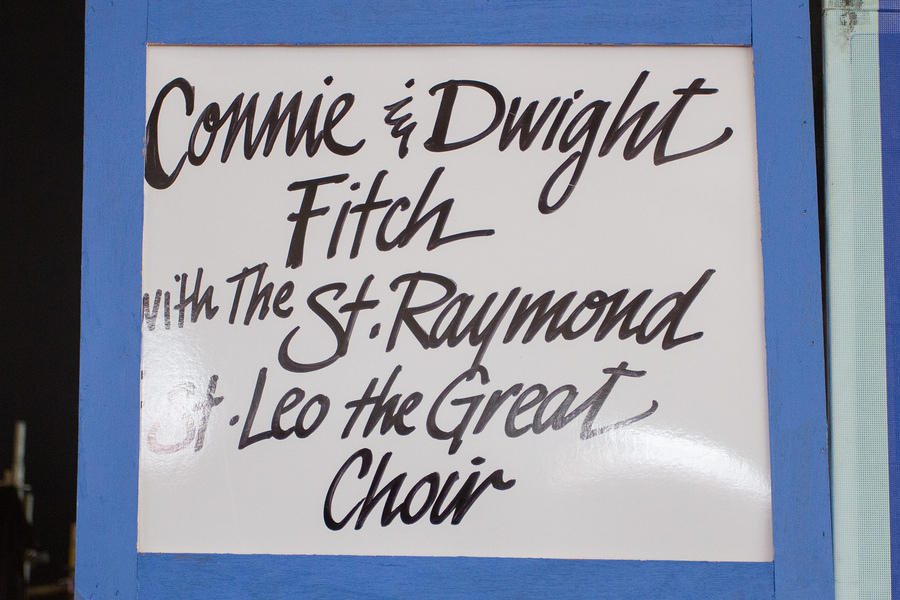 Connie & Dwight
Fitch
with The St. Raymond
St. Leo the Great
Choir